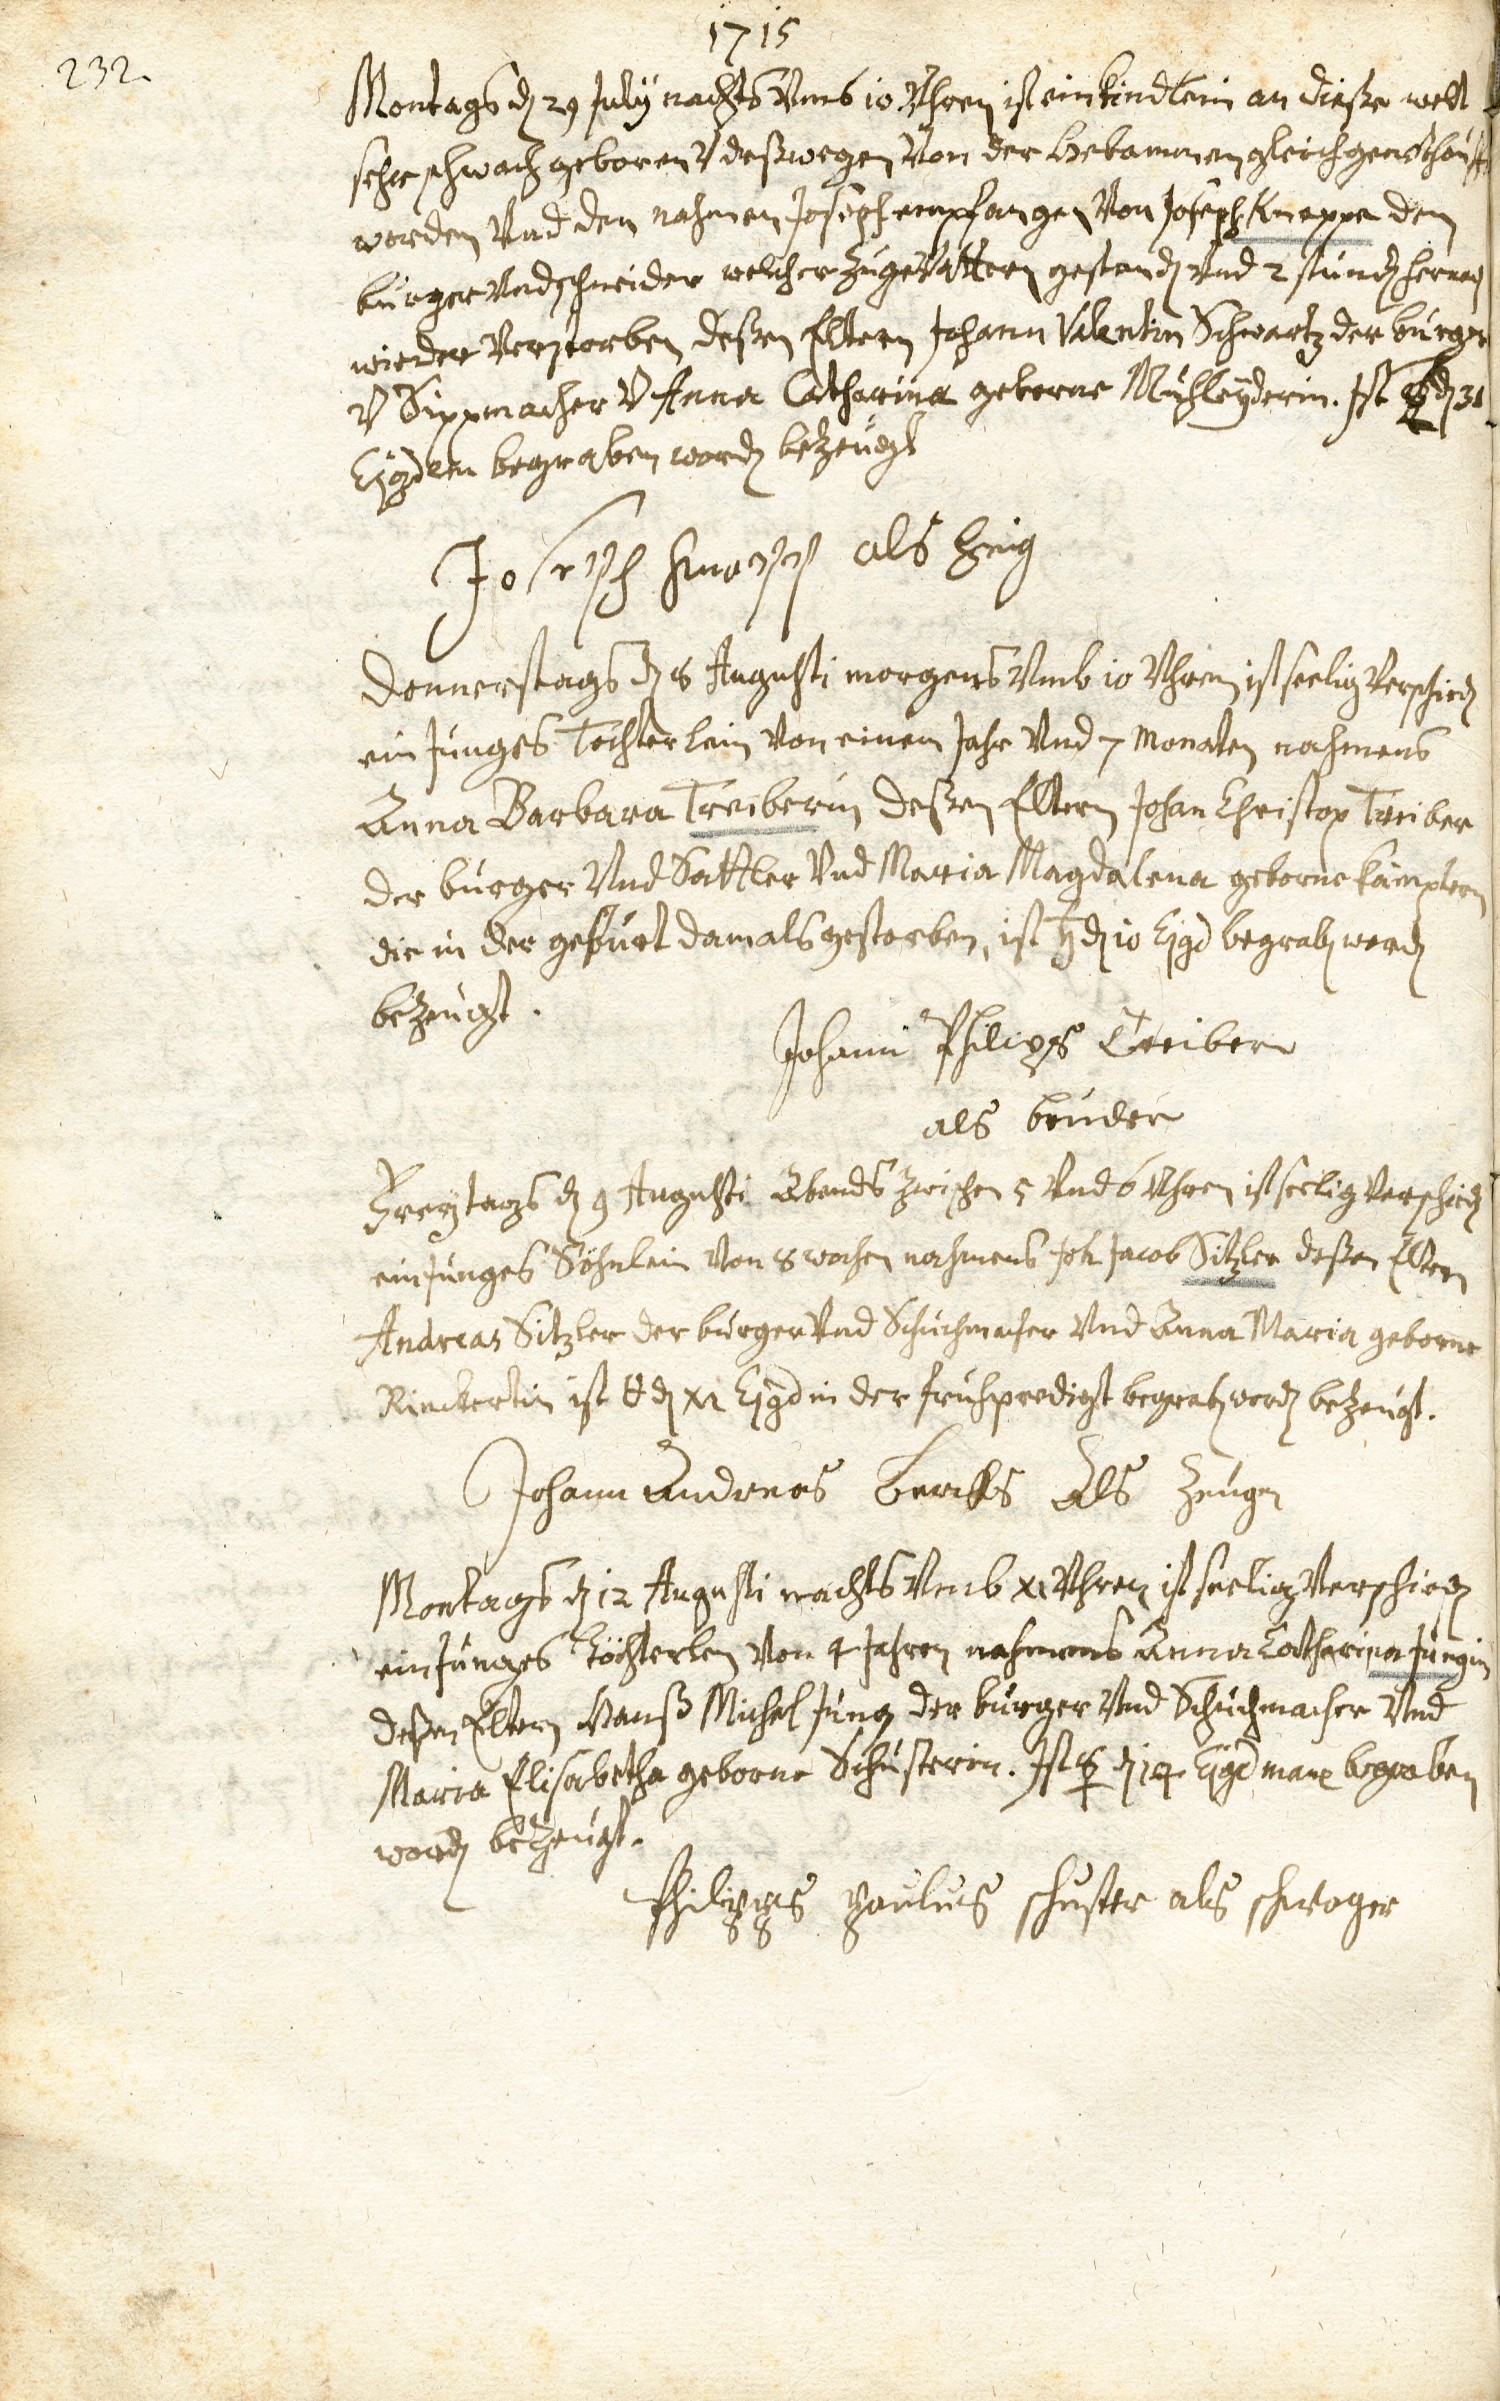 1715
232.
Montags d. 29 July nachts Umb 10 Uhren ist ein Kindlein an dieße welt
sehr schwach geboren V deßwegen Von der Hebammen gleich genothtäufft
worden Und den nahmen Joseph empfangen Von Joseph Knappe dem
burger Und schneider welcher zu gevattern gestanden Und 2 stunden hernach
wieder Verstorben deßen Eltern Johann Valentin Schwartz der burger
V Sippmacher V Anna Catharina geborne Mühleyderin. Ist ☿ d. 31
Ejgdem begraben worden bezeugt
Joseph Knapp als Zeug
Donnerstags d. 8 Augusti morgens Umb 10 Uhren ist seelig Verschieden
ein Junges Töchterlein Von einem Jahr Und 7 Monaten nahmens
Anna Barbara Treiberin deßen Eltern Johan Christop Treiber
der burger Und Sattler Und Maria Magdalena geborne
die in der geburt damals gestorben, ist ♄ d. 10 Ejgd begraben worden
bezeugt.
Johann Philips Treiber
als bruder
Freytags d. 9 Augusti Abends zwischen 5 Und 6 Uhren ist seelig Verschieden
ein Junges Söhnlein Von 8 wochen nahmens Joh Jacob Sitzler deßen Eltern
Andreas Sitzler der burger Und Schuchmacher Und Anna Maria geborne
Rinckertin ist d. XI Ejgd in der fruhpredigt begraben worden bezeugt.
Johann Andreas als Zeugen
Montags d. 12 Augusti nachts Umb XI Uhren ist seelig Verschieden
ein Junges Töchterlen Von 4 Jahren nahmens Anna Catharina Jungin
deßen Eltern Hanß Michel Jung der burger Und Schuchmacher Und
Maria Elisabetha geborne Schusterin. Ist ☿ d. 14 Ejgd mane begraben
worden bezeugt.
Philippus Paulus schuster als schwoger